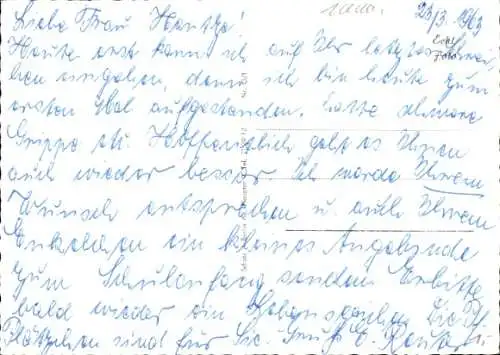 23/3. 1963
Liebe Frau Hentze!
Heute erst kann ich auf Ihr letztes Schrei-
ben eingehen, denn ich bin heute zum
ersten Mal aufgestanden. Hatte schwere
Grippe etc. Hoffentlich geht es Ihnen
auch wieder besser. Ich werde Ihrem
Wunsch entsprechen u. auch Ihrem
Enkelchen ein kleines Angebinde
zum Schulanfang senden. Erbitte
bald wieder ein Lebenszeichen. Die
Plätzchen sind für Sie. Gruß